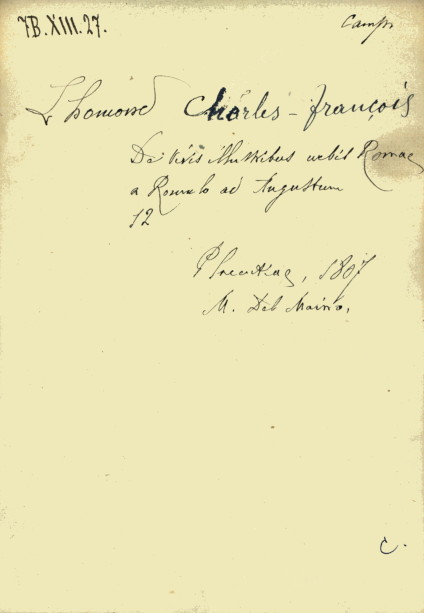 7B.XIII.27.
Camps
Lhomond Charles-François
De viris illustribus urbis Romae
a Romulo ad Augustum
12
Placentiae, 1807
M. Del Maino,
C.